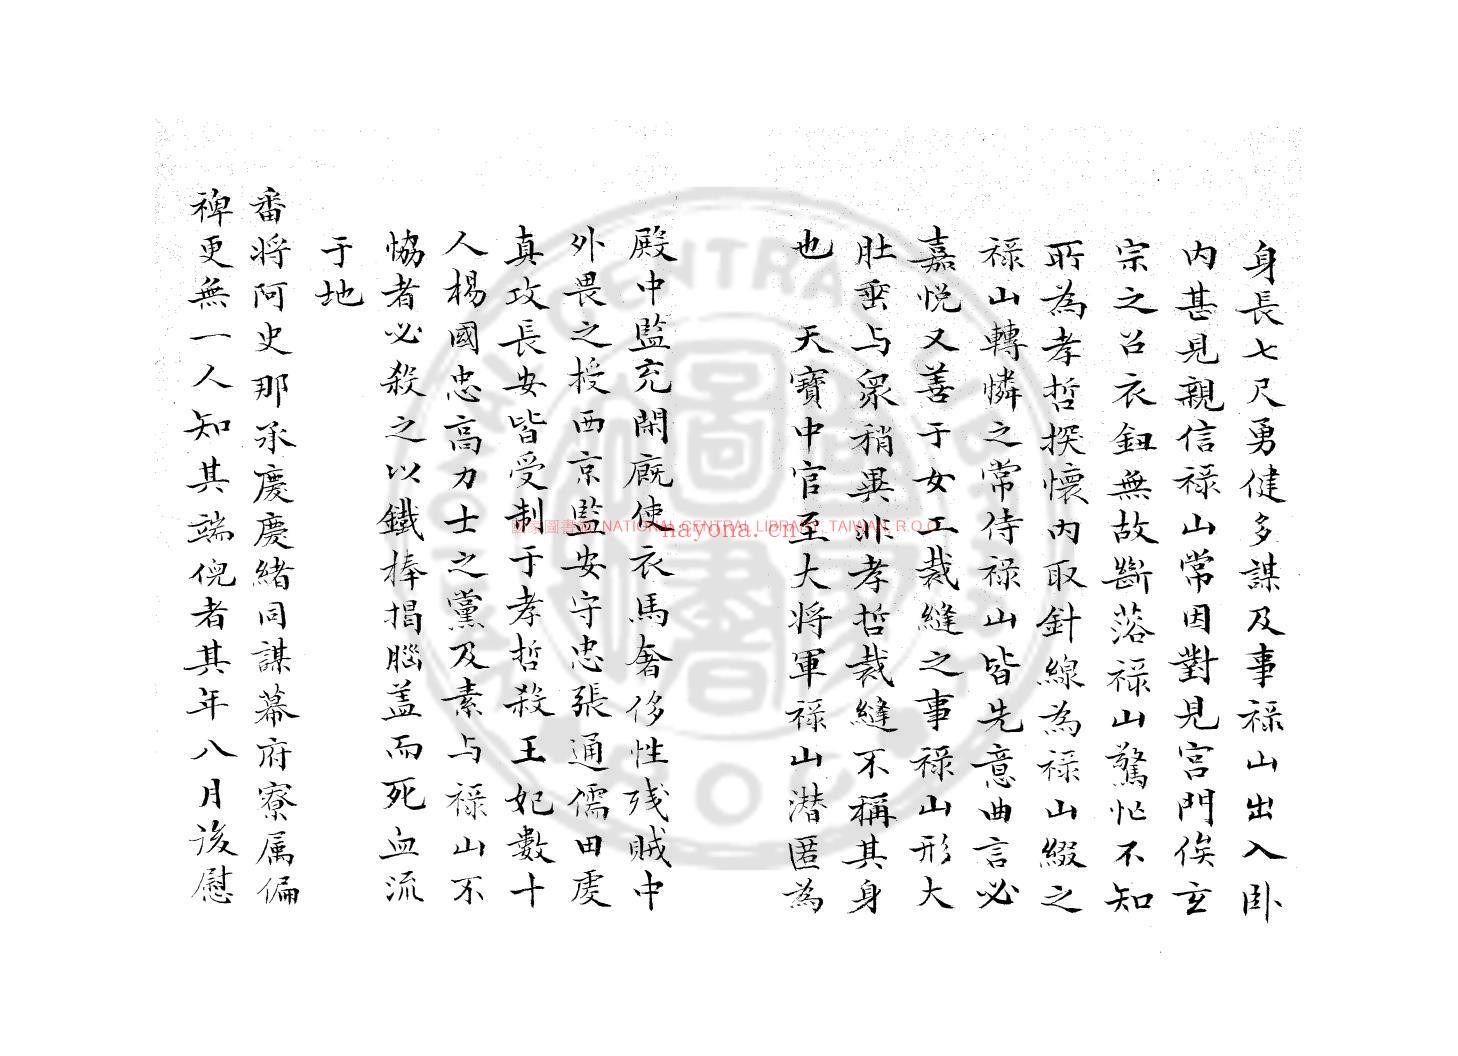 身長七尺勇健多謀及事禄山出入卧
内甚見親信禄山常因對見宮門俟玄
宗之召衣鈕無故斷落禄山驚忙不知
所為孝哲揬懷内取針線為禄山綴之
禄山轉憐之常侍禄山皆先意曲言必
嘉悦又善于女工裁縫之事禄山形大
肚垂与衆稍異非孝哲裁縫不稱其身
也 天寶中官至大将軍禄山潜匿為
殿中監充閑廐使衣馬奢侈性残賊中
外畏之授西京監安守忠張通儒田乾
真攻長安皆受制于孝哲殺王妃數十
人楊國忠高力士之黨及素与禄山不
恊者必殺之以鐵棒揭腦盖而死血流
于地
番将阿史那承慶慶緒同謀幕府寮属偏
裨更無一人知其端倪者其年八月後慰
國家圖書館 NATIONAL CENTRAL LIBRARY, TAIWAN, R.O.C
nayona.cn